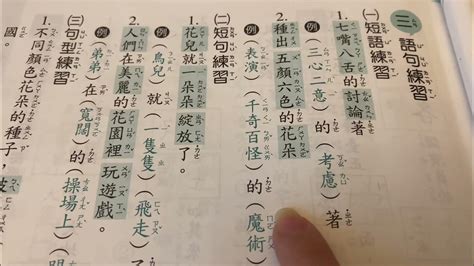 三、語句練習
(一)短語練習
1.七嘴八舌的討論著
例(三心二意)的(考慮)著
2.種出五顏六色的花朵
例(表演)(千奇百怪)的(魔術)
(二)短句練習
1.花兒就一朵朵綻放了。
例(鳥兒)就(一隻隻)(飛走)
2.人們在美麗的花園裡玩遊戲。
例(弟弟)在(寬闊)的(操場上)
(三)句型練習
1.不同顏色花朵的種子,
國。